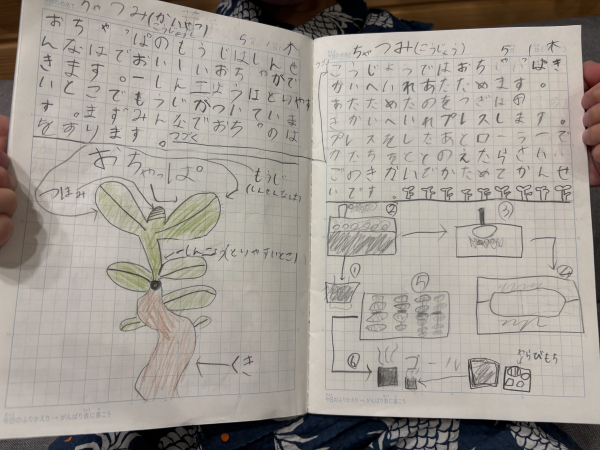 ちゃつみ(かいやつ) 5/1 木
おちゃっぱのもうじはしんせ
んなはでおいしいおちゃがで
きます。一しん二ようはとりやす
いとこでもうじがついて
す。まずみんなでおちゃのは
をすります。
つづく
おちゃっぱ
つぼみ
もうじ
(しんせんなは)
一しん二よう(とりやすいとこ)
くき
ちゃつみ(こうじょう) 5/1 木
つづき
こうじょうではおちゃっぱき
かいへいれあたためます。
あたためたのをつぎは
きかいへいれプレスします。
プレスをしたあとローラーで
かたちをととのえたらさいい
ごのきかいでかためてかんせ
いです。
②
③
①
⑤
④
⑥
ゴール
わらびもち